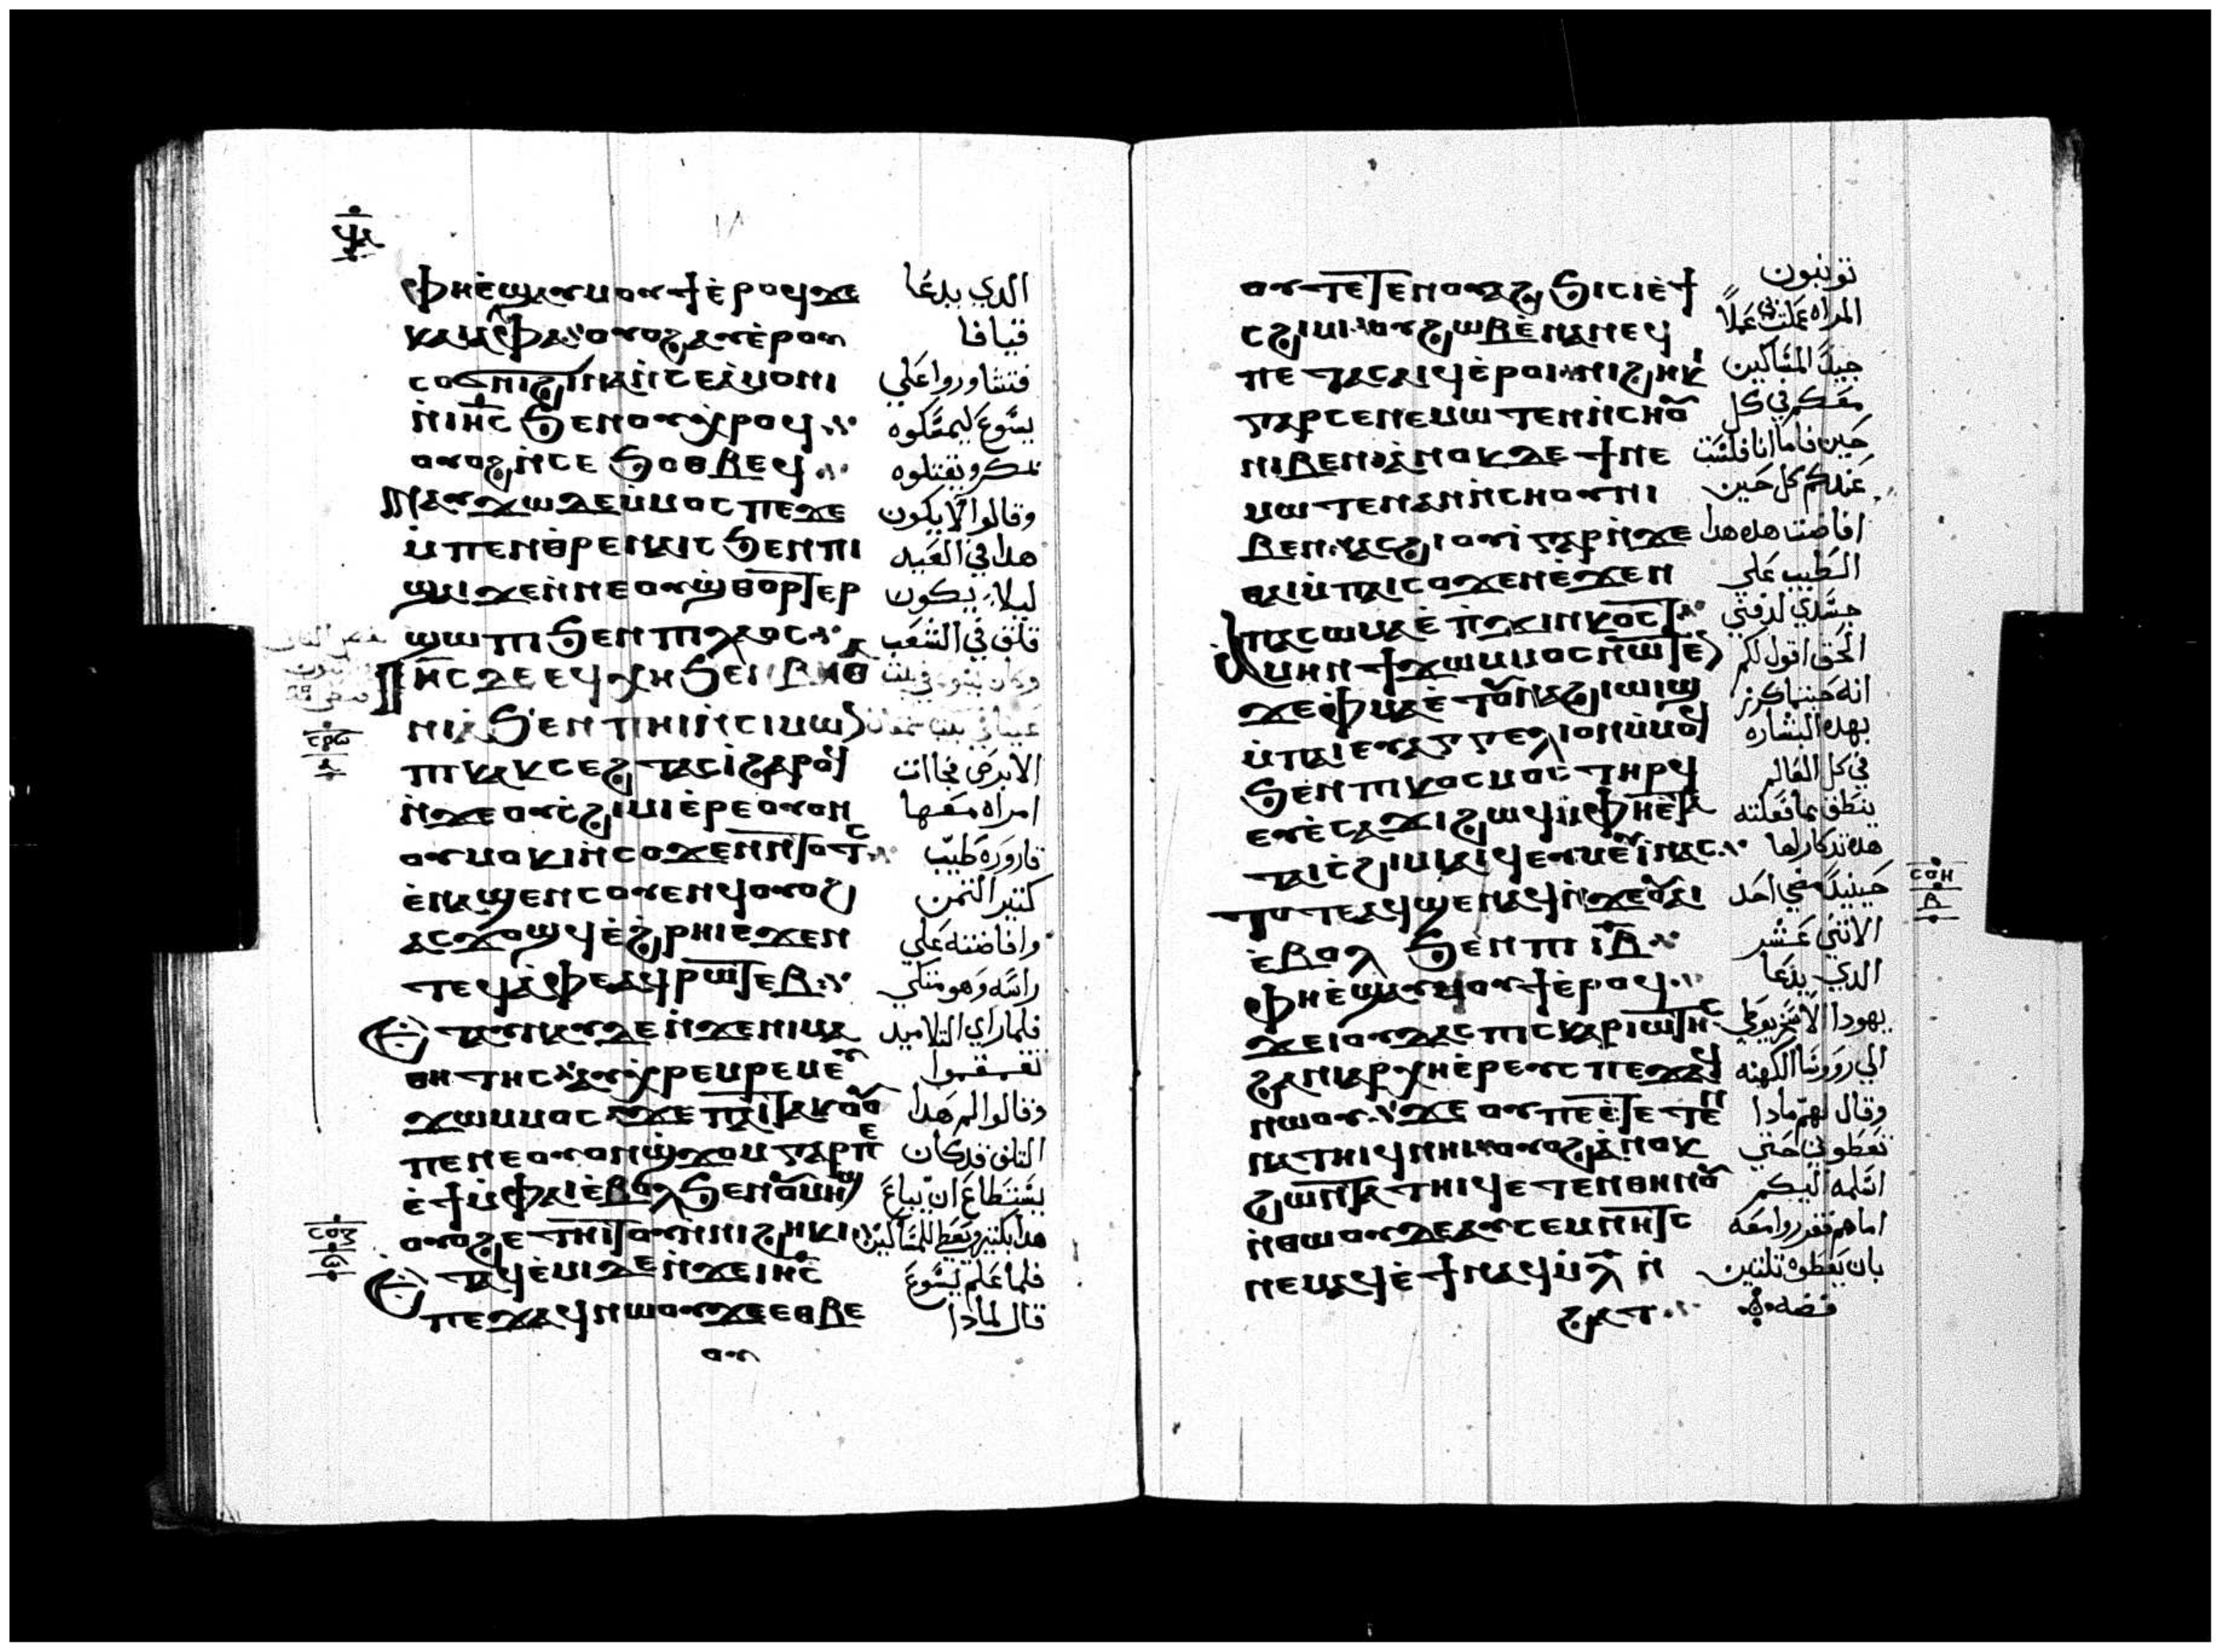 ⲯⲁ
ⲫⲏⲉ̀ϣⲁⲩⲙⲟⲩϯⲉ̀ⲣⲟϥϫⲉ الدي يدعا
ⲕⲁⲓⲁⲫⲁ ⲟⲩⲟϩⲁⲩⲉ̀ⲣⲟⲩ قيافا
ⲥⲟϭⲛⲓϩⲓⲛⲁⲛ̀ⲥⲉⲁ̀ⲙⲟⲛⲓ فتشاوروا علي
ⲛ̀ⲓⲏⲥ ϧⲉⲛⲟⲩⲭ̀ⲣⲟϥ يسوع ليمسكوه
ⲟⲩⲟϩⲛ̀ⲥⲉ ϧⲟⲑⲃⲉϥ بمكر ويقتلوه
ⲛⲁⲩϫⲱⲇⲉⲙ̀ⲙⲟⲥ ⲡⲉϫⲉ وقالوا لا يكون
ⲙ̀ⲡⲉⲛⲑ̀ⲣⲉⲛⲁⲓⲥ ϧⲉⲛⲡⲓ هدا في العيد
ϣⲁⲓ ϫⲉⲛ̀ⲛⲉⲟⲩϣ̀ⲑⲟⲣⲧⲉⲣ ليلا يكون
ϣⲱⲡⲓ ϧⲉⲛ ⲡⲓⲗⲁⲟⲥ قلق في الشعب
ⲓⲏⲥ ⲇⲉ ⲉϥⲭⲏ ϧⲉⲛ ⲃⲏⲑ وكان يسوع في بيت
ⲛⲓⲁ ϧⲉⲛ ⲡⲏⲓⲛ̀ⲥⲓⲙⲱⲛ عنيا في بيت سمعان
ⲡⲓⲕⲁⲕⲥⲉϩⲧ ⲁⲥⲓ̀ϩⲁⲣⲟϥ الابرص فجاات
ⲛ̀ϫⲉⲟⲩⲥ̀ϩⲓⲙⲓⲉ̀ⲣⲉⲟⲩⲟⲛ امراه معها
ⲟⲩⲙⲟⲕⲓⲛ̀ⲥⲟϫⲉⲛⲛ̀ⲧⲟⲧⲥ قارورة طيب
ⲉ̀ⲛⲁϣⲉⲛⲥⲟⲩⲉⲛϥⲟⲩⲟϩ كتير التمن
ⲁⲥϫⲟϣϥⲉ̀ϩ̀ⲣⲏⲓⲉϫⲉⲛ وافاضته علي
ⲧⲉϥⲁ̀ⲫⲉⲁϥⲣⲱⲧⲉⲃ راسه وهو متكي
ⲉⲧⲁⲩⲛⲁⲩⲇⲉⲛ̀ϫⲉⲛⲓⲙⲁ فلما راي التلاميد
ⲑⲏⲧⲏⲥ ⲁⲩⲭ̀ⲣⲉⲙⲣⲉⲙⲉⲩ تقمقموا
ϫⲱⲙⲙⲟⲥ ϫⲉ ⲡⲁⲓⲧⲁⲕⲟⲟⲩ وقالوا لم هدا
ⲡⲉⲛⲉⲟⲩⲟⲛϣ̀ϫⲟⲙ ⲅⲁⲣⲡⲉ التلف قد كان
ⲉ̀ϯⲙ̀ⲫⲁⲓⲉ̀ⲃⲟⲗϧⲉⲛⲟⲩⲙⲏϣ يستطاع ان يباع
ⲟⲩⲟϩⲉ̀ⲧⲏⲓⲧⲟⲩⲛ̀ⲛⲓϩⲏⲕⲓ هدا بكتير ويعطي للمساكين
ⲉⲧⲁϥⲉ̀ⲙⲓⲇⲉⲛ̀ϫⲉⲓⲏⲥ فلما علم يسوع
ⲡⲉϫⲁϥⲛⲱⲟⲩϫⲉⲉⲑⲃⲉ قال لمادا
ⲟⲩ
ⲥⲟⲍ
ⲟⲩⲧⲉⲧⲉⲛⲟⲩⲁϩϧⲓⲥⲓⲉ̀ϯ توتبون
ⲥϩⲓⲙⲓ ⲟⲩϩⲱⲃⲉ̀ⲛⲁⲛⲉϥ المراه عملت في عملًا
ⲡⲉⲧⲁⲥⲁⲓϥⲉ̀ⲣⲟⲓ ⲛⲓϩⲏⲕⲓ جيدًا المساكين
ⲅⲁⲣⲥⲉⲛⲉⲙⲱⲧⲉⲛⲛ̀ⲥⲏⲟⲩ معكم في كل
ⲛⲓⲃⲉⲛ ⲁ̀ⲛⲟⲕⲇⲉ ϯⲛⲉ حين فاما انا فلست
ⲙⲱⲧⲉⲛⲁⲛⲛ̀ⲥⲏⲟⲩⲛⲓ عندكم كل حين
ⲃⲉⲛ ⲁⲥϩⲓⲟⲩⲓ̀ ⲅⲁⲣⲛ̀ϫⲉ افاضت هده هدا
ⲑⲁⲓⲙ̀ⲡⲁⲓⲥⲟϫⲉⲛⲉ̀ϫⲉⲛ الطيب علي
ⲡⲁⲥⲱⲙⲁⲉ̀ⲡ̀ϫⲓⲛⲕⲟⲥⲧ جسدي لدفني
ⲁⲙⲏⲛ ϯϫⲱⲙⲙⲟⲥⲛⲱⲧⲉⲛ الحق اقول لكم
ϫⲉⲫ̀ⲙⲁⲉ̀ⲧⲟⲩⲛⲁϩⲓⲱⲓϣ انه حيتما كرز
ⲙ̀ⲡⲁⲓⲉⲩⲁⲅⲅⲉⲗⲓⲟⲛⲙ̀ⲙⲟϥ بهده البشاره
ϧⲉⲛⲡⲓⲕⲟⲥⲙⲟⲥ ⲧⲏⲣϥ في كل العالم
ⲉⲩⲉ̀ⲥⲁϫⲓϩⲱϥⲙ̀ⲫⲏⲉ̀ⲧⲁ ينطق بما فعلته
ⲧⲁⲓⲥ̀ϩⲓⲙⲓⲁⲓϥⲉⲩⲙⲉⲩⲓ̀ⲛⲁⲥ هده تدكار لها
ⲧⲟⲧⲉⲁϥϣⲉⲛⲁϥⲛ̀ϫⲉⲟⲩⲁⲓ حينيدًا مضي احد
ⲉ̀ⲃⲟⲗ ϧⲉⲛⲡⲓⲓⲃ الاتني عشر
ⲫⲏⲉ̀ϣⲁⲩⲙⲟⲩϯⲉ̀ⲣⲟϥ الدي يدعا
ϫⲉⲓⲟⲩⲇⲁⲥ ⲡⲓⲥⲕⲁⲣⲓⲱⲧⲏⲥ يهودا الاسخريوطي
ϩⲁⲛⲓⲁⲣⲭⲏⲉ̀ⲣⲉⲩⲥ ⲡⲉϫⲁϥ الي روروسا الكهنه
ⲛⲱⲟⲩ ϫⲉ ⲟⲩⲡⲉⲉ̀ⲧⲉⲧⲉⲛ وقال لهم مادا
ⲛⲁⲧⲏⲓϥⲛⲏⲓ ⲟⲩⲟϩⲁ̀ⲛⲟⲕ تعطوني حتي
ϩⲱⲛ̀ⲧⲁⲧⲏⲓϥⲉⲧⲉⲛⲑⲏⲛⲟⲩ اسلمه اليكم
ⲛ̀ⲑⲱⲟⲩⲇⲉⲁⲩⲥⲉⲙⲛⲏⲧⲥ اما هم فقرروا معه
ⲛⲉⲙⲁϥⲉ̀ϯⲛⲁϥⲙ̀ⲗ ⲛ̀ بان يعطوه تلتين
ϩⲁⲧ فضه
ⲥⲟⲏ
ⲃ